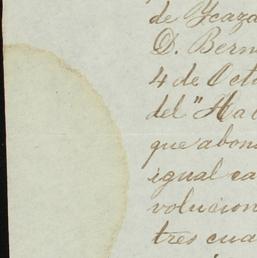 de Ycaza
D. Bern
4 de Octu
del "Ha
que abon
igual ca
volucion
tres cua